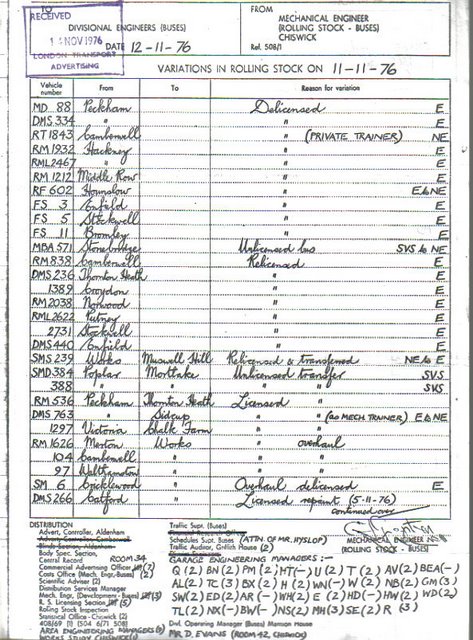 TO
RECEIVED
DIVISIONAL ENGINEERS (BUSES)
15 NOV 1976
DATE 12-11-76
LONDON TRANSPORT
ADVERTISING
FROM
MECHANICAL ENGINEER
(ROLLING STOCK - BUSES)
CHISWICK
Ref. 508/1
VARIATIONS IN ROLLING STOCK ON 11-11-76
Vehicle number From To Reason for variation
MD 88 Peckham Delicensed E
DMS 334 " " E
RT 1843 Camberwell " (PRIVATE TRAINER) NE
RM 1932 Hackney " E
RML 2467 " " E
RM 1212 Middle Row " E
RF 602 Hounslow " E to NE
FS 3 Enfield " E
FS 5 Stockwell " E
FS 11 Bromley " E
MBA 571 Stonebridge Unlicensed bus SVS to NE
RM 838 Camberwell Relicensed E
DMS 236 Thornton Heath " E
1389 Croydon " E
RM 2038 Norwood " E
RML 2622 Putney " E
2731 Stockwell " E
DMS 440 Enfield " E
SMS 239 Works Muswell Hill Relicensed & transferred NE to E
SMD 384 Poplar Mortlake Unlicensed transfer SVS
388 " " " " SVS
RM 536 Peckham Thornton Heath Licensed "
DMS 763 " Sidcup " " (as MECH TRAINER) E to NE
1297 Victoria Chalk Farm " "
RM 1626 Merton Works " overhaul
104 Camberwell " " "
97 Walthamstow " " "
SM 6 Cricklewood Overhaul delicensed E
DMS 266 Catford Licensed repaint (5-11-76) E
continued over
DISTRIBUTION
Advert. Controller, Aldenham
Body Spec. Section,
Central Record ROOM 34
Commercial Advertising Office (7)
Costs Office (Mech. Engr.-Buses) (2)
Scientific Adviser (2)
Distribution Services Manager
Mech. Engr. (Development - Buses) (3)
R. S. Licensing Section (5)
Rolling Stock Inspection
Statistical Office - Chiswick (2)
408/69 (1) 504 6/71 508
AREA ENGINEERING MANAGERS
WORKS STUDY CHISWICK (1)
Traffic Supt. (Buses)
Schedules Supt. Buses (ATTN OF MR. HYSLOP)
Traffic Auditor, Griffith House (2)
MECHANICAL ENGINEER
(ROLLING STOCK - BUSES)
GARAGE ENGINEERING MANAGERS :-
Q (2) BN (2) PM (2) HT (-) U (2) T (2) AV (2) BEA (-)
AL (2) TC (3) BX (2) H (2) WN (-) W (2) NB (2) GM (3)
SW (2) ED (2) AR (-) WH (2) E (2) HD (-) HW (2) WD (2)
TL (2) NX (-) BW (-) NS (2) MH (3) SE (2) R (3)
Divl. Operating Manager (Buses) Manson House
MR D. EVANS (ROOM 42, CHISWICK)